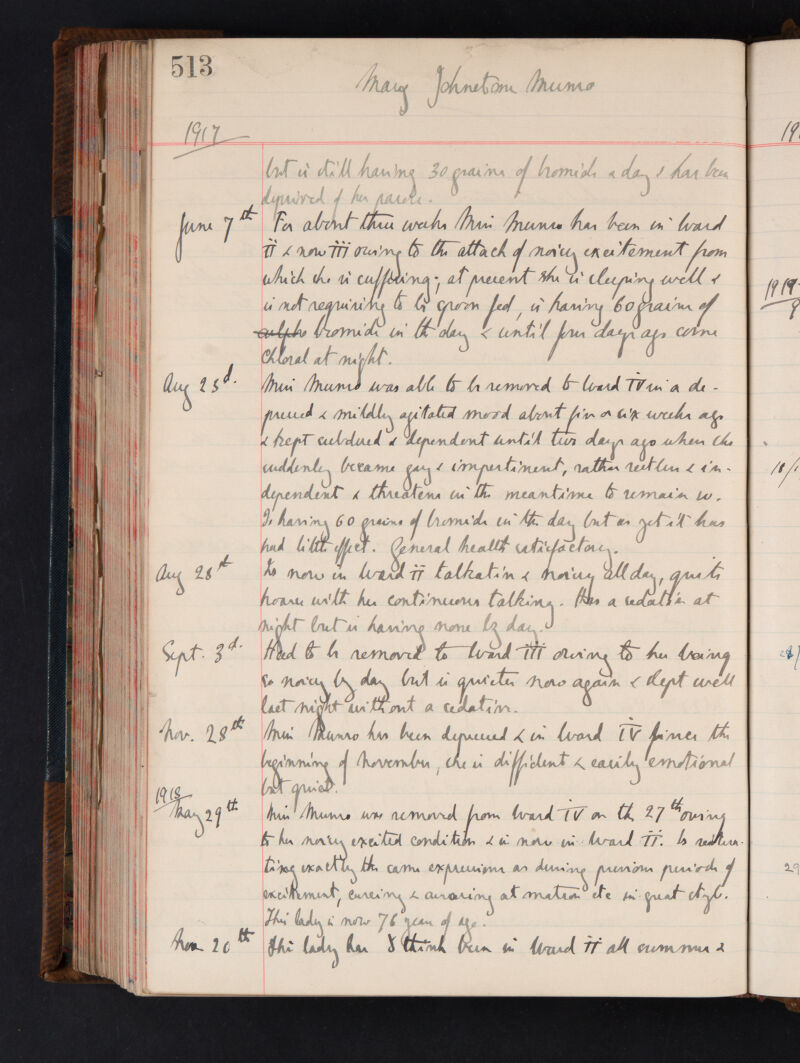 513
Mary Johnston Munro
1917
but is still having 30 grains of bromide a day & has been
deprived of her parole.
June 7th For about three weeks Miss Munro has been in Ward
II & now III owing to the attack of noisy excitement from
which she is suffering; at present she is sleeping well &
is not requiring to be spoon fed, is having 60 grains of
sulpho bromide in the day & until four days ago some
Chloral at night.
Aug 23d. Miss Munro was able to be removed to Ward IV in a de-
pressed & mildly agitated mood about five or six weeks ago
& kept subdued & dependent until two days ago when she
suddenly became gay & impertinent, rather restless & in-
dependent & threatens in the meantime to remain so.
Is having 60 grains of bromide in the day but as yet it has
had little effect. General health satisfactory.
Aug 28th Is now in Ward II talkative & noisy all day, quite
hoarse with her continuous talking. Has a sedative at
night but is having none by day.
Sept. 3d. Had to be removed to Ward III owing to her being
so noisy by day but is quieter now again & slept well
last night without a sedative.
Nov. 28th Miss Munro has been depressed & in Ward IV since the
beginning of November, she is diffident & easily emotional
but quiet.
1918
May 29th Miss Munro was removed from Ward IV on the 27th owing
to her noisy excited condition & is now in Ward II. Is reitera-
ting exactly the same expressions as during previous periods of
excitement, cursing & swearing at matron etc in great style.
This lady is now 76 years of age.
Nov 20th This lady has I think been in Ward II all summer &
191
1919
18/
29